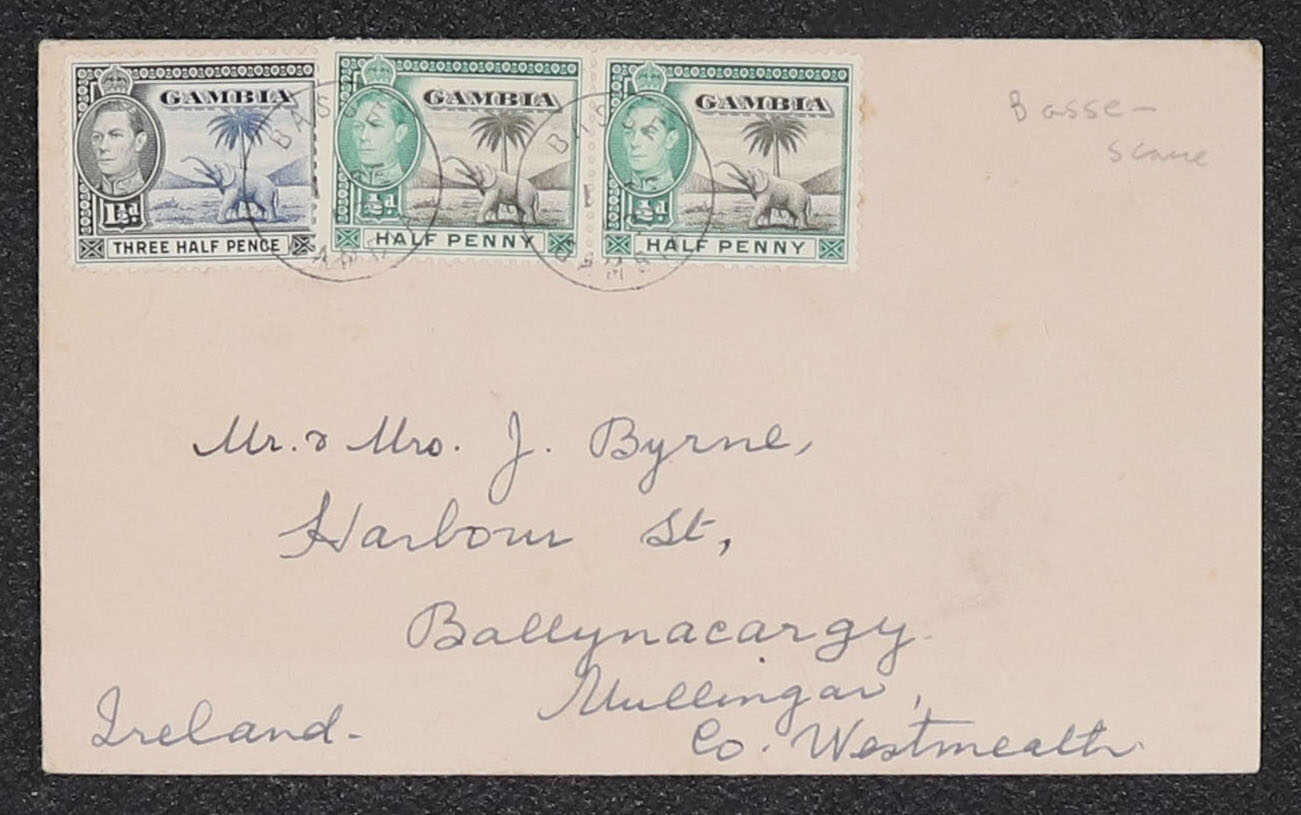 GAMBIA
1½d
THREE HALF PENCE
GAMBIA
½d
HALF PENNY
GAMBIA
½d
HALF PENNY
BASSE
BAS
Basse-
Mr. & Mrs. J. Byrne,
Harbour St,
Ballynacargy.
Mullingar,
Co. Westmeath.
Ireland-